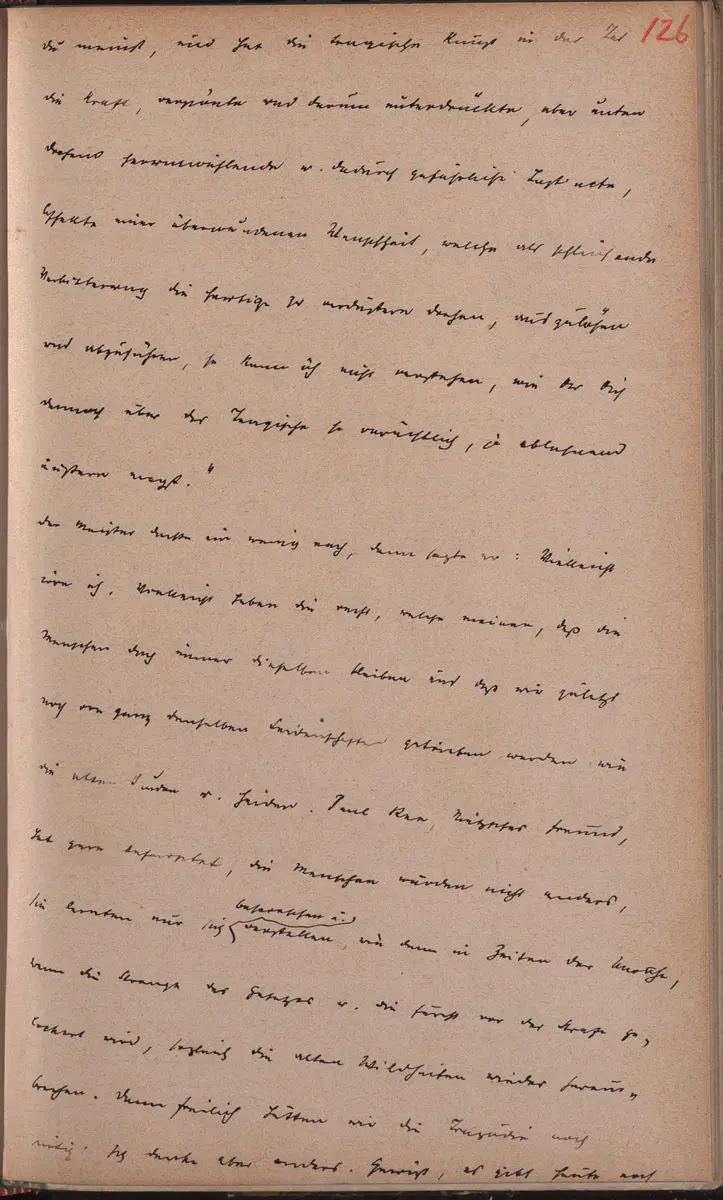 126
du meinst, und hat die tragische Kunst in der Tat
die Kraft, verpönte und darum unterdrückte, aber unten
drohend herumwühlende u. dadurch gefährliche Instincte,
Affekte einer überwundenen Menschheit, welche als schleichende
Verbitterung die heutige zu verdüstern drohen, auszulösen
und abzuführen, so kann ich nicht verstehen, wie Du Dich
dennoch über das Tragische so verächtlich, ja ablehnend
äußern magst."
Der Meister dachte ein wenig nach, dann sagte er: Vielleicht
irre ich. Vielleicht haben die recht, welche meinen, daß die
Menschen doch immer dieselben bleiben und daß wir zuletzt
noch von ganz denselben Leidenschaften getrieben werden wie
die alten Juden u. Heiden. Paul Ree, Nietzsches Freund,
hat gern behauptet, die Menschen würden nicht anders,
sie lernten nur sich beherrschen u. verstellen, wie denn in Zeiten der Unruhe,
wenn die Strenge des Gesetzes u. die Furcht vor der Strafe ge-
lockert wird, sogleich die alten Wildheiten wieder heraus-
brechen. Dann freilich hätten wir die Tragödie noch
nötig. Ich denke aber anders. Gewiß, es gibt heute noch